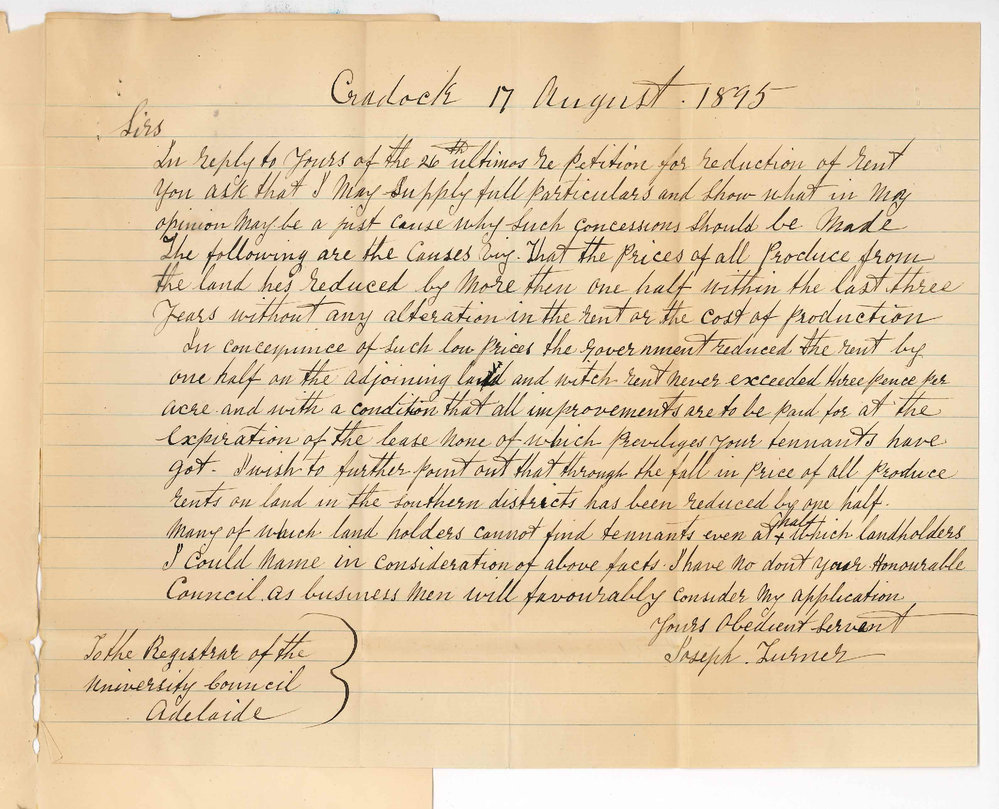 Cradock 17 August. 1895
Sirs
In reply to Yours of the 26th ultimos re Petition for reduction of rent
You ask that I May Supply full Particulars and Show what in My
opinion May be a just cause why Such concessions Should be Made
The following are the Causes Viz. That the Prices of all Produce from
the land hes reduced by More then one half within the last three
Years without any alteration in the rent or the cost of Production
In concequnince of Such low Prices the Government reduced the rent by
one half on the adjoining land and witch rent never exceeded three pence Per
acre and with a condition that all improvements are to be Paid for at the
Expiration of the lease None of which Previliges Your tennants have
got. I wish to further Point out that through the fall in Price of all Produce
rents on land in the Southern districts has been reduced by one half.
Many of which land holders cannot find tennants even at half which landholders
I Could Name in Consideration of above facts. I have No dout Your Honourable
Council as business Men will favourably consider My application
Yours Obedient Servant
Joseph. Turner
To the Registrar of the
University Council
Adelaide